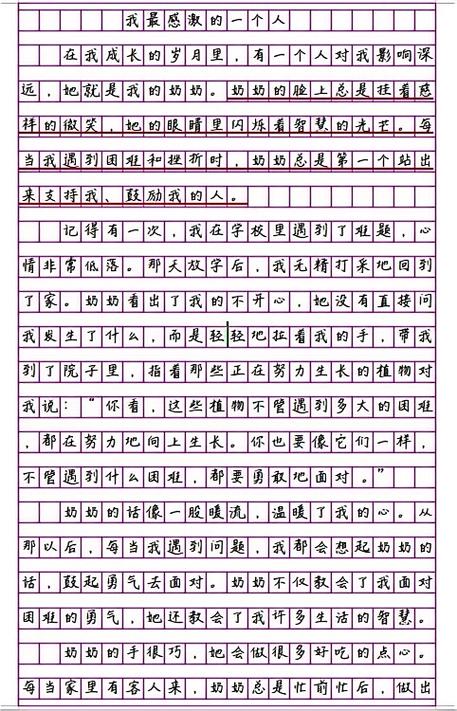 我最感激的一个人
在我成长的岁月里，有一个人对我影响深
远，她就是我的奶奶。奶奶的脸上总是挂着慈
祥的微笑，她的眼睛里闪烁着智慧的光芒。每
当我遇到困难和挫折时，奶奶总是第一个站出
来支持我、鼓励我的人。
记得有一次，我在学校里遇到了难题，心
情非常低落。那天放学后，我无精打采地回到
了家。奶奶看出了我的不开心，她没有直接问
我发生了什么，而是轻轻地拉着我的手，带我
到了院子里，指着那些正在努力生长的植物对
我说：“你看，这些植物不管遇到多大的困难
，都在努力地向上生长。你也要像它们一样，
不管遇到什么困难，都要勇敢地面对。”
奶奶的话像一股暖流，温暖了我的心。从
那以后，每当我遇到问题，我都会想起奶奶的
话，鼓起勇气去面对。奶奶不仅教会了我面对
困难的勇气，她还教会了我许多生活的智慧。
奶奶的手很巧，她会做很多好吃的点心。
每当家里有客人来，奶奶总是忙前忙后，做出